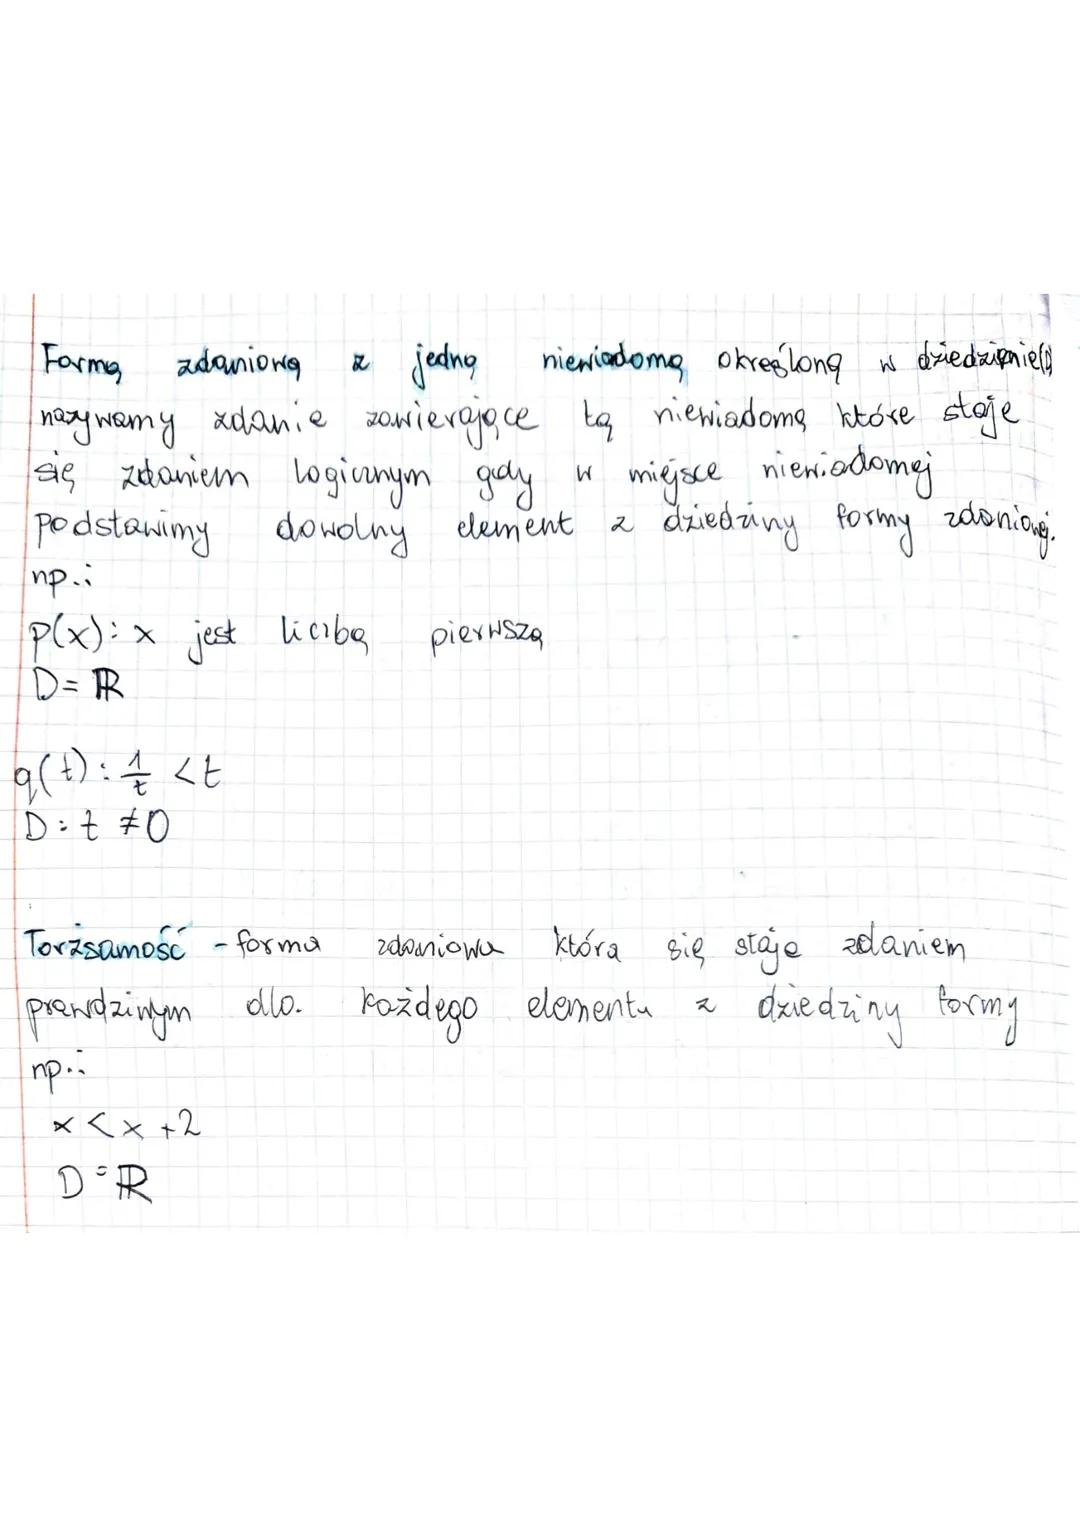 Formą zdaniową z jedną niewiadomą określoną w dziedzinie(D)
nazywamy zdanie zawierające tą niewiadomą które staje
się zdaniem logicznym gdy w miejsce niewiadomej
podstawimy dowolny element z dziedziny formy zdaniowej.
np.:
p(x): x jest liczbą pierwszą
D = ℝ
q(t): 1/t < t
D: t ≠ 0
Torżsamość - forma zdaniowa która się staje zdaniem
prawdziwym dla każdego elementu z dziedziny formy
np.:
x < x + 2
D = ℝ